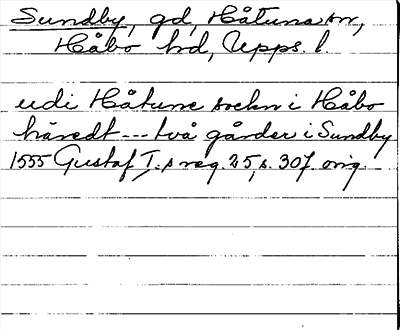 Sundby, gd, Håtuna sn,
Håbo hd, Upps. l.
udi Håtune sochn i Håbo
häredt --- två gårder i Sundby
1555 Gustaf I:s reg. 25, s. 307. orig